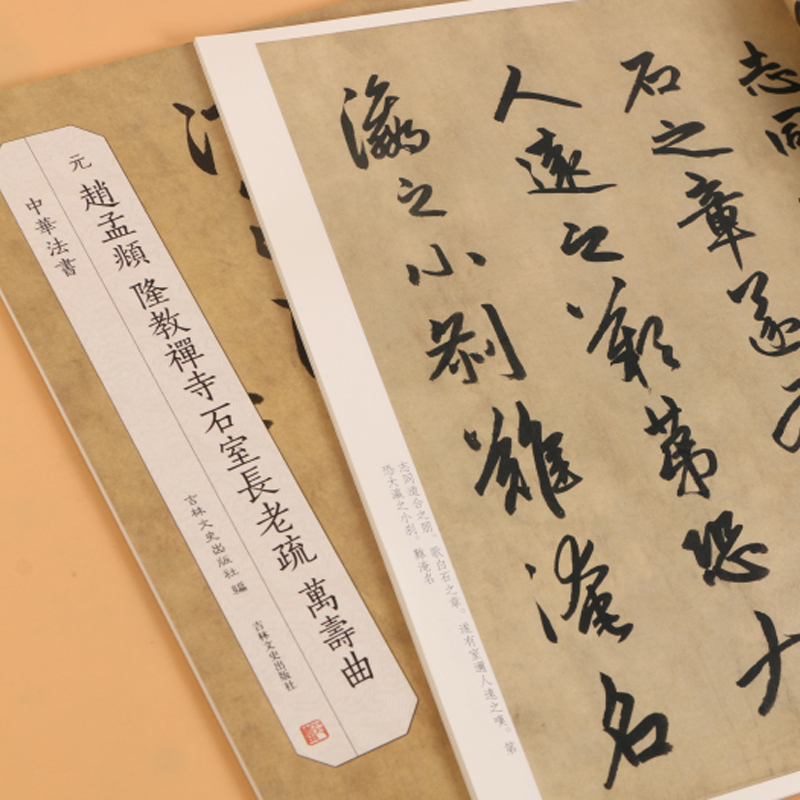 元 趙孟頫 隆教禪寺石室長老疏 萬壽曲
中華法書
吉林文史出版社 編
吉林文史出版社
志同
石之章遂有
人遠之嘆第恐大
瀛之小刹難淹名
志同道合之朋。歌白石之章。遂有室邇人遠之嘆。第
恐大瀛之小刹，難淹名